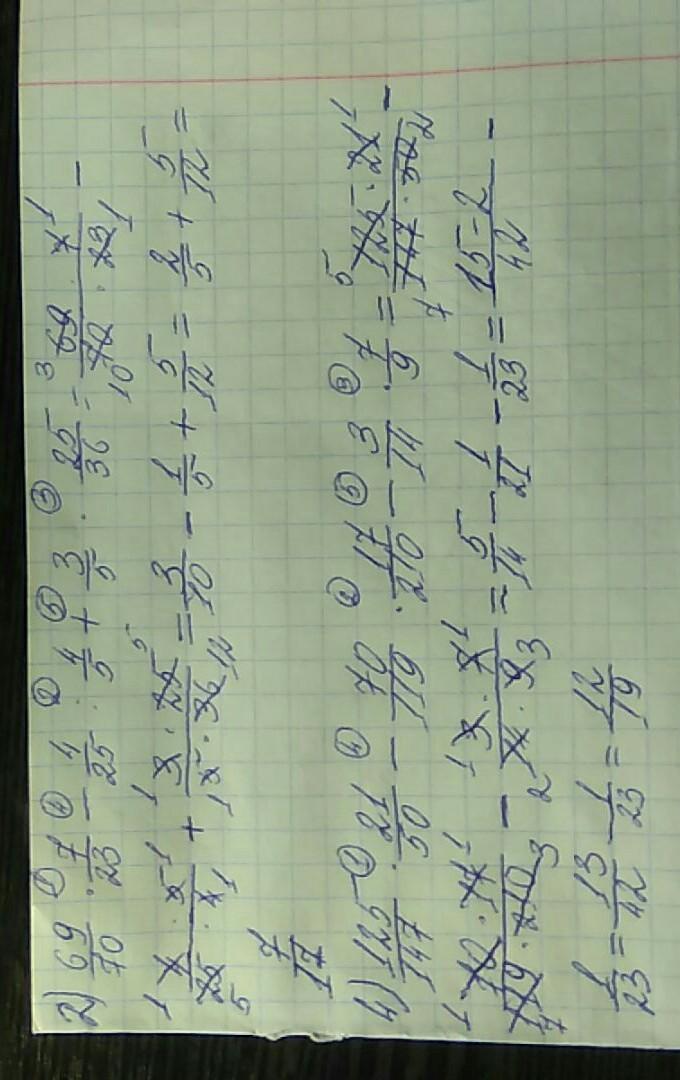 2) 69/70 ① · 7/23 ④ − 4/25 ② : 4/5 ⑤ + 3/5 ③ · 25/36 = (69 · 7)/(70 · 23) −
(4 · 5)/(25 · 4) + (3 · 25)/(5 · 36) = 3/10 − 1/5 + 5/12 = 2/5 + 5/12 =
7/17
4) 125/147 ① · 21/50 ④ − 70/119 ② · 17/210 ⑤ − 3/14 ③ · 7/9 = (125 · 21)/(147 · 50) −
(70 · 17)/(119 · 210) − (3 · 7)/(14 · 9) = 5/14 − 1/21 − 1/23 = (15 − 2)/42 −
1/23 = 13/42 − 1/23 = 12/19